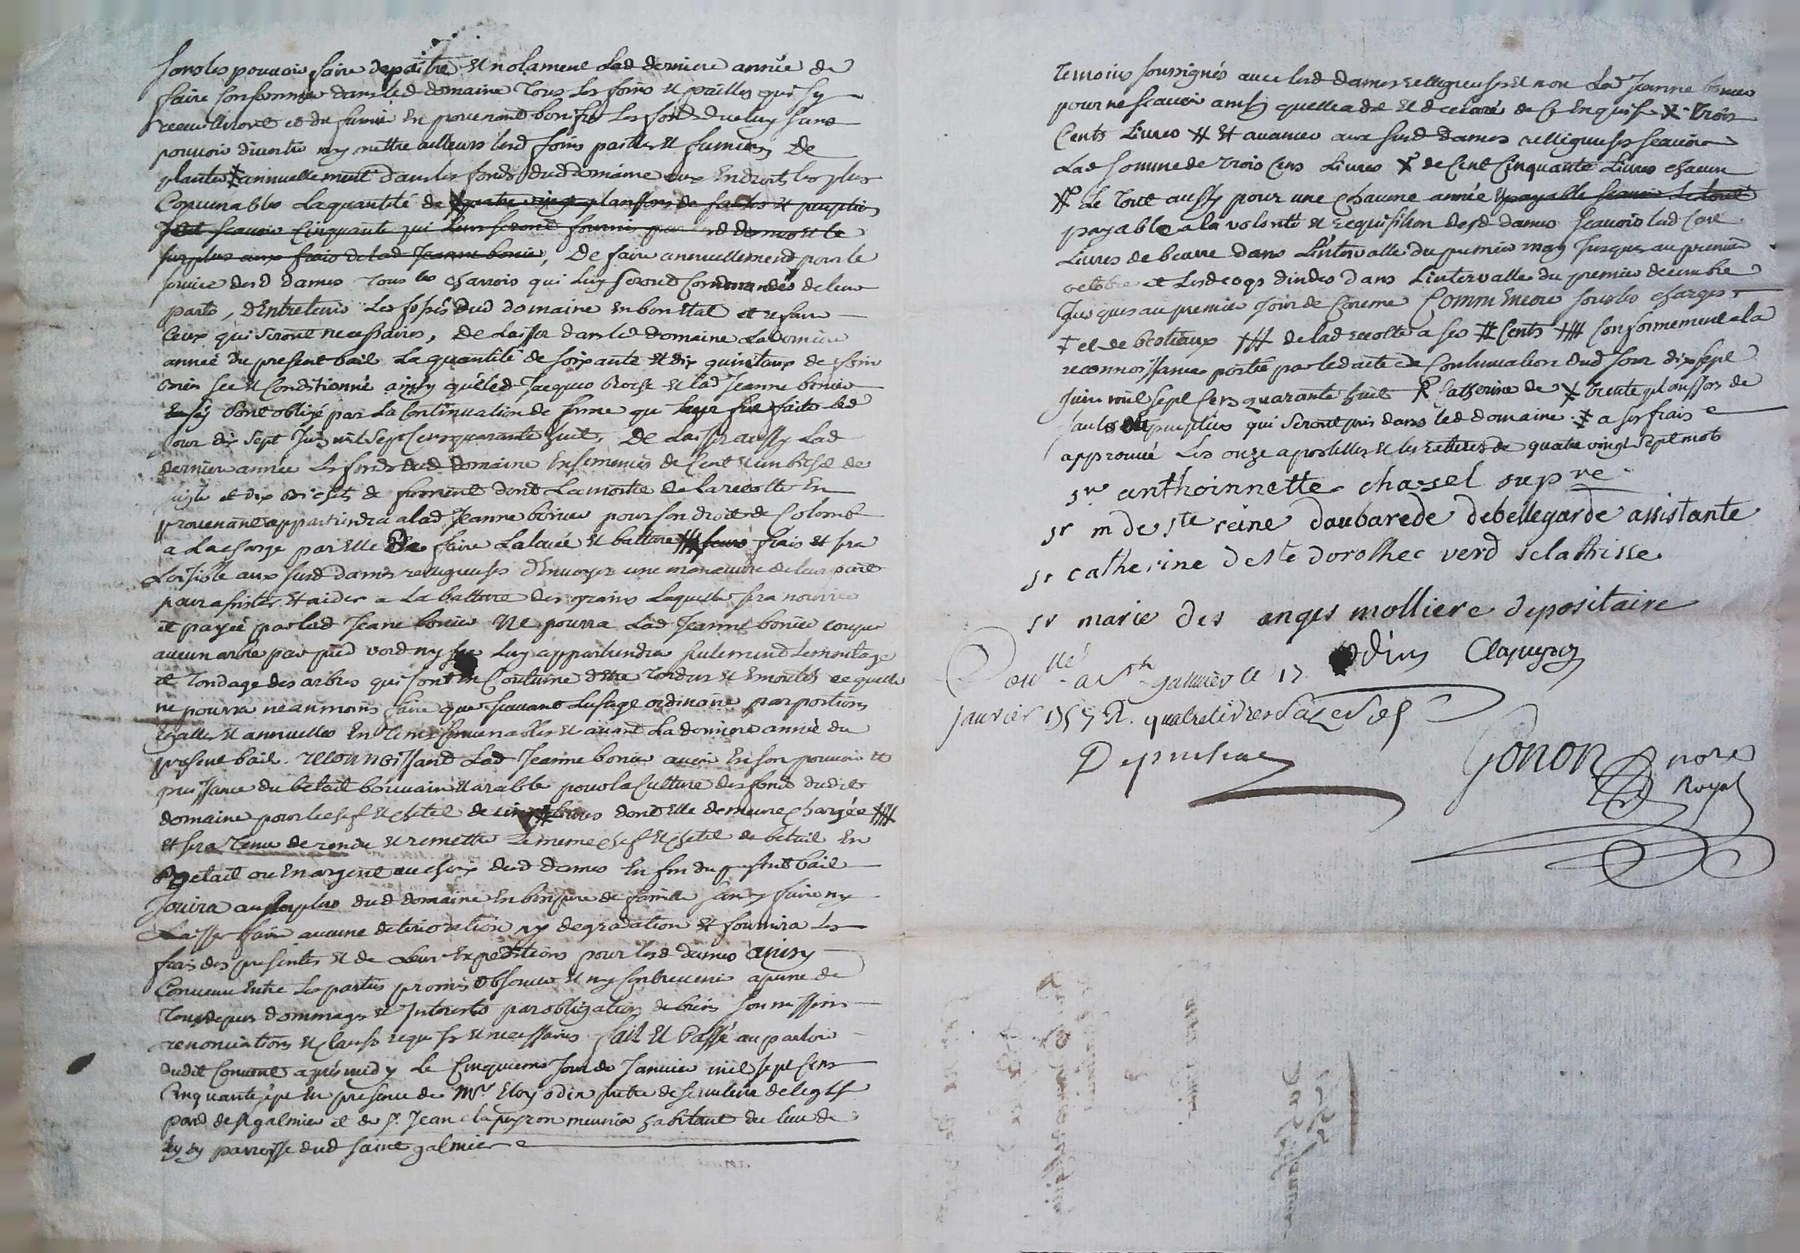 sans les pouvoir faire depaitre, et notament lad derniere année de
faire consommer dans led domaine tous les foins et pailles qui sy
recueilliront et du fumier en provenant bonifier les fonds diceluy sans
pouvoir divertir ny mettre ailleurs lesd foins pailles et fumiers De
planter ⁜ annuellement dans les fonds dud domaine aux endroits les plus
Convenables la quantité de quatre vingt plansons de saules et peupliers
scavoir Cinquante qui leur seront fournis par lesd dames et le
surplus aux frais de lad Jeanne bonier, De faire annuellement pour le
service desd dames tous les charrois qui luy seront Commandés de leur
part, d'Entretenir les fossés dud domaine en bon etat et refaire
Ceux qui seront necessaires, De laisser dans led domaine la derniere
année du present bail la quantité de soixante et dix quintaux de foin
sec et Conditionné ainsy que led Jacques et lad Jeanne bonier
sont obligé par la Continuation de ferme qui leur fut faite led
Jour dix sept Juin mil sept cens quarante huit, De laisser aussy lad
derniere année les fonds dud domaine ensemencés de Cent
seigle et dix de froment dont la moitié de la recolte en
provenant appartiendra a lad Jeanne bonier pour son droit de Colome
a la charge par elle de faire la levée et batture ⁜ leurs frais et sera
loisible aux susd dames religieuses d'Envoyer une manœuvre de leur part
pour assister et aider a la batture des grains laquelle sera nourrie
et payée par lad Jeane bonier Ne pourra lad Jeanne bonier couper
aucun arbre par pied verd ny sec luy appartiendra seulement lemontage
et tondage des arbres qui sont en Coutume d'etre tondus et Emontés ce quelle
ne pourra neanmoins faire que suivant lusage ordinaire par portions
Egalles et annuelles en tems Convenables et avant la derniere année du
present bail. reconnoissant lad Jeanne bonier avoir en son pouvoir et
puissance du betail bouvain et arable pour la Culture des fonds dudit
domaine pour le chef et chetel de livres dont elle demeure chargée ⁜
et sera tenue de rendre et remettre le meme chef et chetel de betail En
Betail ou en argent au choix desd dames en fin du present bail
Jouira au surplus dud domaine en bon pere de famille sans y faire ny
Laisser faire aucune deterioration ny degradation et fournira les
frais des presentes et de leur expeditions pour lesd dames ainsy
Convenu entre les parties promis observer et ny contrevenir a peine de
tous depens dommages et Interests par obligation de biens soumissions
renonciations et clauses requises et necessaires fait et Passé au parloir
dudit Couvent apres midy le Cinquieme Jour de Janvier mil sept cens
Cinquante sept en presence de Mre Eloy odin pretre de
de St galmier et de Sr Jean clapeyron meunier habitant du lieu de
paroisse dud saint galmier
temoins soussignés avec lesd dames religieuses et non lad Jeanne bonier
pour ne scavoir ainsy quelle a dit et declaré de ce enquise ⁜ trois
Cents livres ⁜ et avancer aux susd dames religieuses scavoir
Lad somme de trois cens livres ⁜ de Cent Cinquante livres chacun
⁜ le tout aussy pour une chacune année payable scavoir le tout
payable a la volonté et requisition desd dames scavoir lad
Livres de beurre dans L'intervalle du premier may Jusques au premier
octobre et lesd coqs dindes dans L'intervalle du premier decembre
Jusques au premier Jour de Careme Commencer sous les charges
‡ et de bestiaux ⁜ de lad recolte a ses ⁜ Cents ⁜ Conformement a la
reconnoissance portée par led acte de Continuation dud Jour dix sept
Juin mil sept cens quarante huit ⁜ Catherine de ⁜ trente plansons de
saules et peupliers qui seront pris dans led domaine ⁜ a ses frais
approuvé les onze apostilles et les ratures de quatre vingt sept mots
sr anthoinnette chazel supre
sr m de ste reine daubarede debellegarde assistante
sr catherine de ste dorothee verd
sr marie des anges molliere depositaire
odin Clapeyron
Conllé a St galmier le 17
janvier 1757 R. quatre livres
Gonon nore
Royal